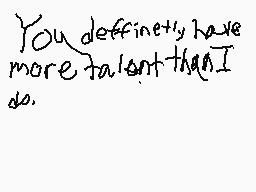 You deffinetly have
more talent than I
do.